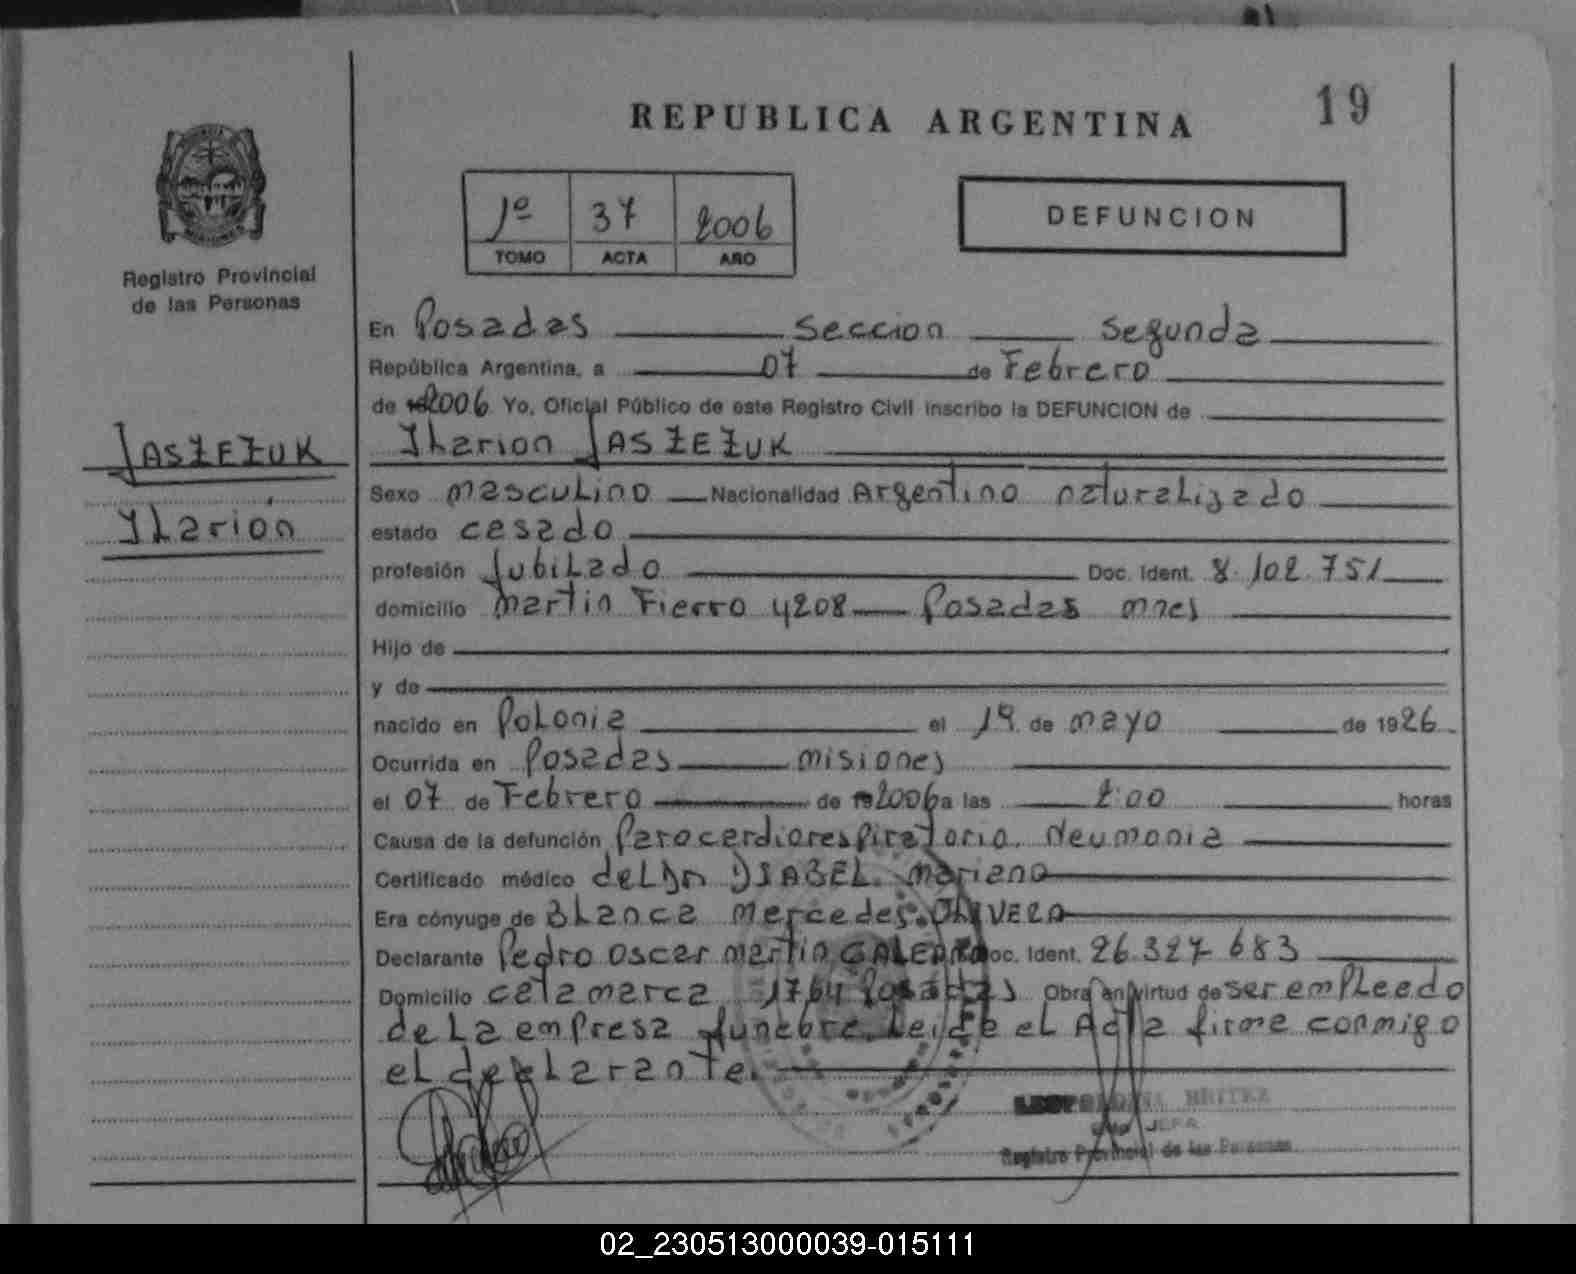 19
REPUBLICA ARGENTINA
1º 37 2006
TOMO ACTA AÑO
DEFUNCION
Registro Provincial
de las Personas
JASZEZUK
Ilarión
En Posadas Seccion Segunda
República Argentina, a 07 de Febrero
de 2006 Yo, Oficial Público de este Registro Civil inscribo la DEFUNCION de
Ilarion JASZEZUK
Sexo masculino Nacionalidad Argentino naturalizado
estado casado
profesión Jubilado Doc. Ident. 8.102.751
domicilio Martin Fierro 4208 Posadas mnes
Hijo de
y de
nacido en Polonia el 19 de mayo de 1926
Ocurrida en Posadas misiones
el 07 de Febrero de 2006 a las 2:00 horas
Causa de la defunción Parocardiorespiratorio. Neumonia
Certificado médico del Dr ISABEL Mariano
Era cónyuge de Blanca Mercedes OLIVERA
Declarante Pedro Oscar Martin GALEANO Doc. Ident. 26.327.683
Domicilio catamarca 1764 Posadas Obra en virtud de ser empleado
de la empresa funebre. Leida el Acta firma conmigo
el declarante.
BRITEZ
JEFA
Registro Provincial de las Personas
02_230513000039-015111